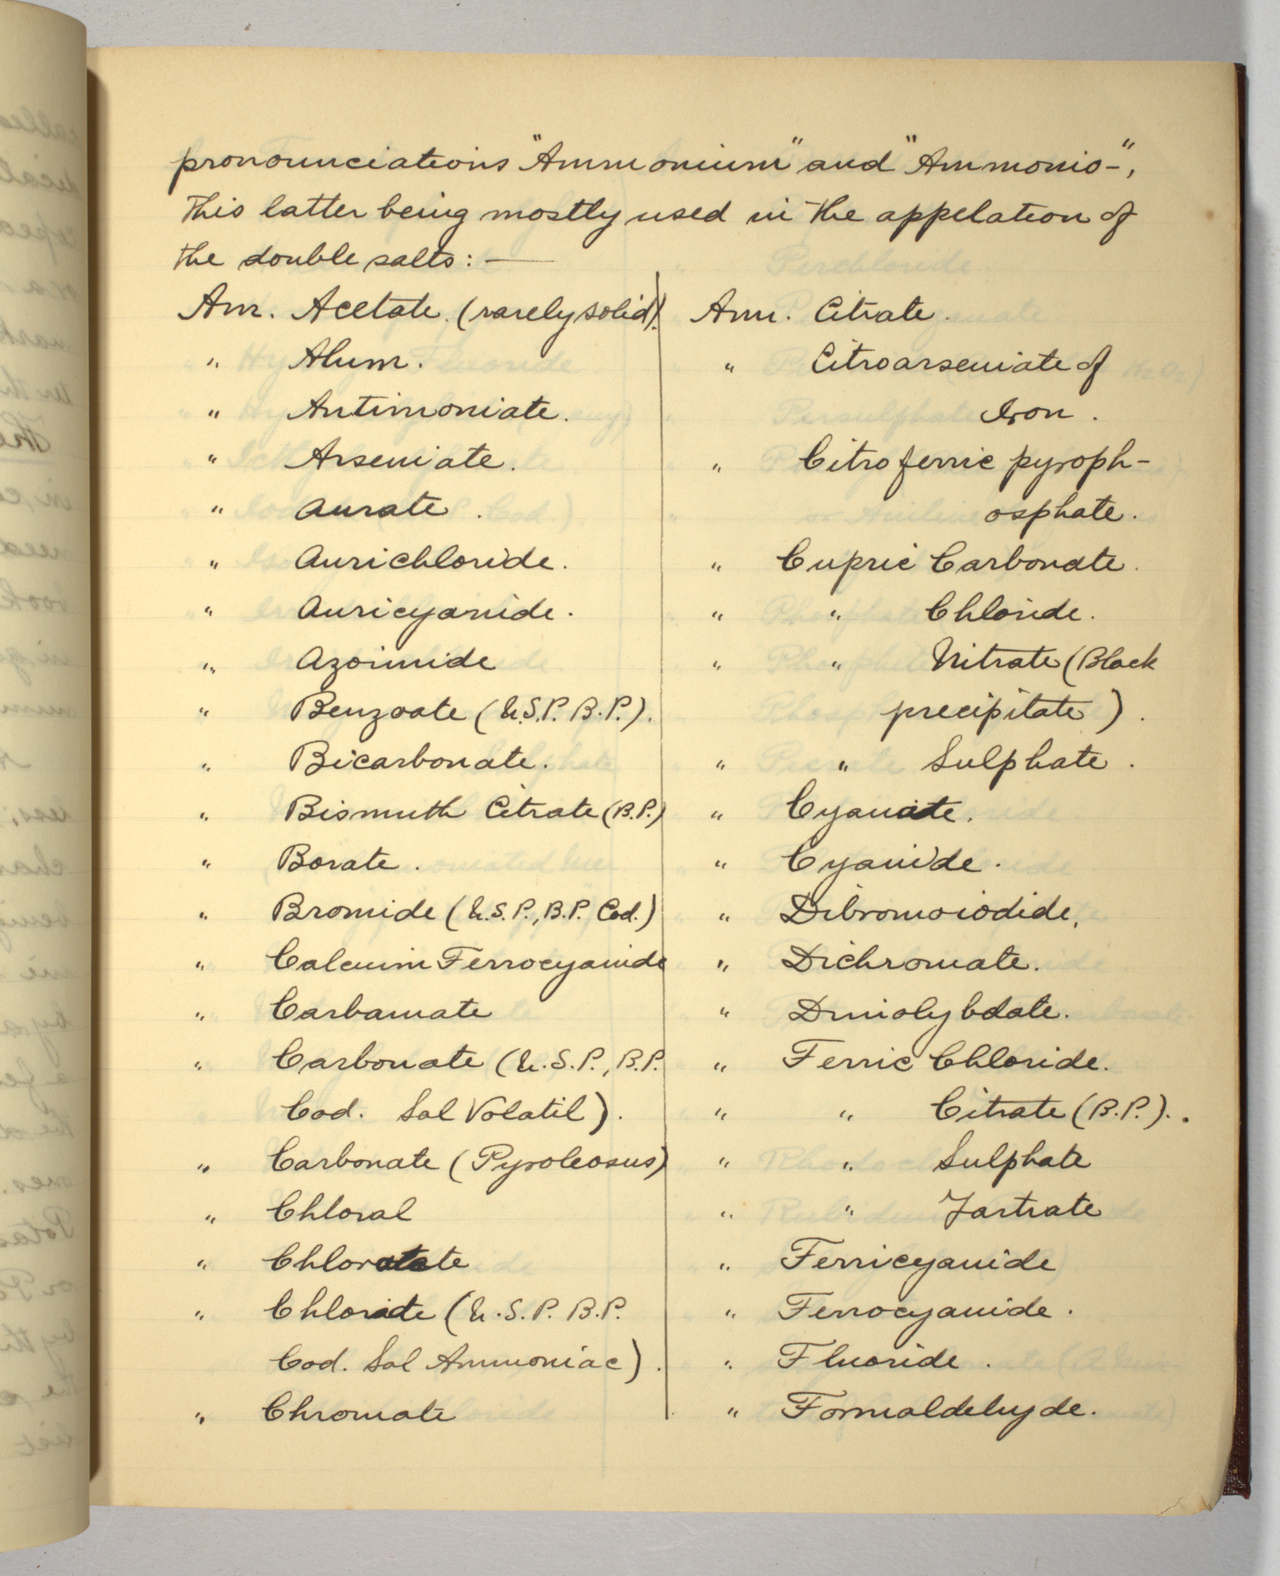 pronounciations "Ammonium" and "Ammonio-",
this latter being mostly used in the appelation of
the double salts: —
Am. Acetate (rarely solid).
" Alum.
" Antimoniate.
" Arseniate.
" Aurate.
" Aurichloride.
" Auricyanide.
" Azoimide
" Benzoate (U.S.P. B.P.).
" Bicarbonate.
" Bismuth Citrate (B.P.)
" Borate.
" Bromide (U.S.P., B.P. Cod.)
" Calcium Ferrocyanide
" Carbamate
" Carbonate (U.S.P., B.P.
Cod. Sal Volatil).
" Carbonate (Pyroleosus)
" Chloral
" Chlorate
" Chloride (U.S.P. B.P.
Cod. Sal Ammoniac).
" Chromate
Am. Citrate.
" Citroarseniate of
Iron.
" Citroferric pyroph-
osphate.
" Cupric Carbonate.
" " Chloride.
" " Nitrate (Black
precipitate).
" " Sulphate.
" Cyanate.
" Cyanide.
" Dibromoiodide.
" Dichromate.
" Dimolybdate.
" Ferric Chloride.
" " Citrate (B.P.).
" " Sulphate
" " Tartrate
" Ferricyanide
" Ferrocyanide.
" Fluoride.
" Formaldehyde.